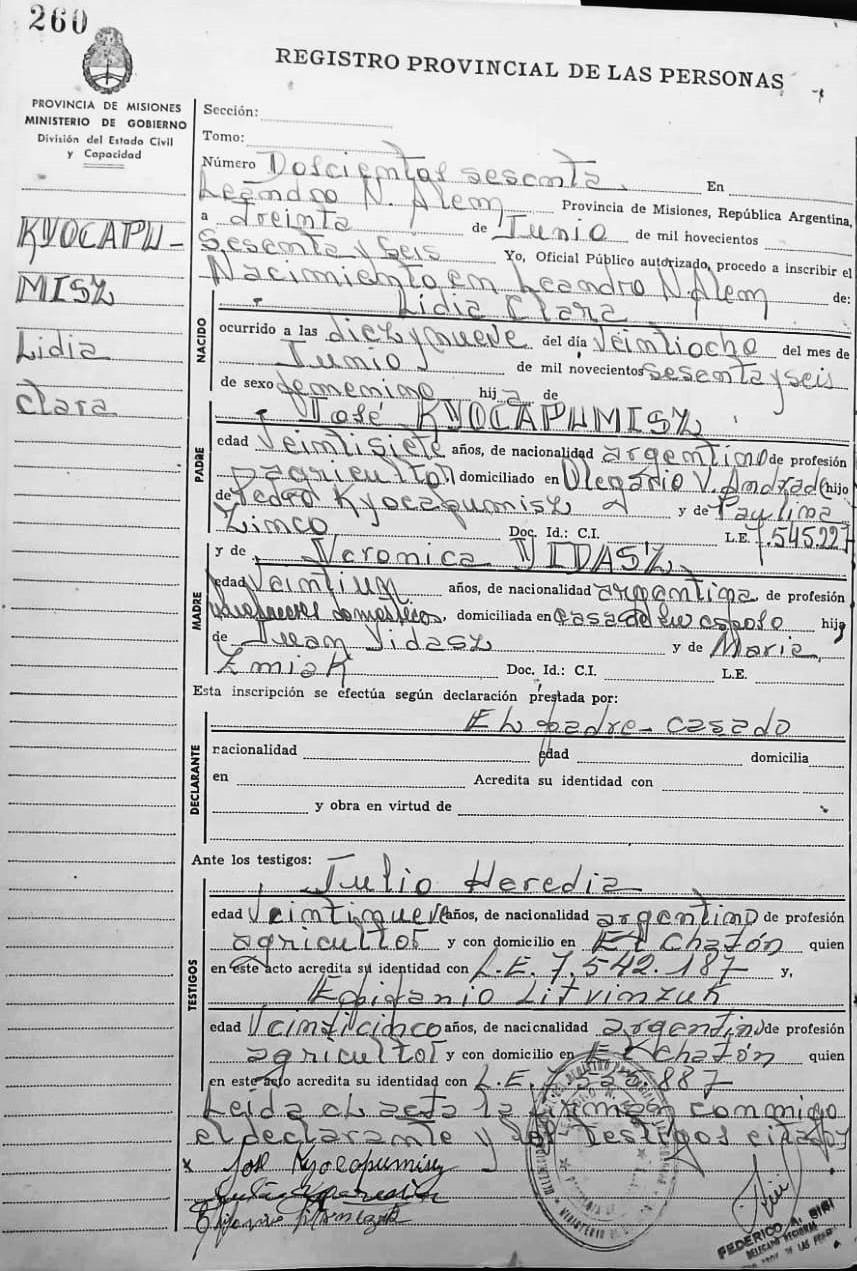 260
REGISTRO PROVINCIAL DE LAS PERSONAS
PROVINCIA DE MISIONES
MINISTERIO DE GOBIERNO
División del Estado Civil
y Capacidad
KYOCAPU-
MISZ
Lidia
Clara
Sección:
Tomo:
Número Doscientos sesenta. En
Leandro N. Alem Provincia de Misiones, República Argentina,
a treinta de Junio de mil novecientos
Sesenta y Seis Yo, Oficial Público autorizado, procedo a inscribir el
Nacimiento en Leandro N. Alem de:
Lidia Clara
NACIDO
ocurrido a las diez y nueve del día Veintiocho del mes de
Junio de mil novecientos Sesenta y seis
de sexo femenino hija de
PADRE
José KYOCAPUMISZ
edad Veintisiete años, de nacionalidad argentino de profesión
agricultor domiciliado en Olegario V. Andrade hijo
de Pedro Kyocapumisz y de Paulina
Zinco Doc. Id.: C.I. L.E. 7.545.227
MADRE
y de Veronica VIDASZ
edad Veintiun años, de nacionalidad argentina, de profesión
quehaceres domesticos, domiciliada en casa de su esposo hija
de Juan Vidasz y de Maria
Zmiak Doc. Id.: C.I. L.E.
Esta inscripción se efectúa según declaración prestada por:
DECLARANTE
El padre - casado
nacionalidad edad domicilia
en Acredita su identidad con
y obra en virtud de
Ante los testigos:
TESTIGOS
Julio Heredia
edad Veintinueve años, de nacionalidad argentino de profesión
agricultor y con domicilio en El Chatón quien
en este acto acredita su identidad con L.E. 7.542.187 y,
Epifanio Litvinzuk
edad Veinticinco años, de nacionalidad argentino de profesión
agricultor y con domicilio en El Chatón quien
en este acto acredita su identidad con L.E. 887
Leida el acta la firman conmigo
el declarante y los testigos citados
x José Kyocapumisz
FEDERICO A. BIRI